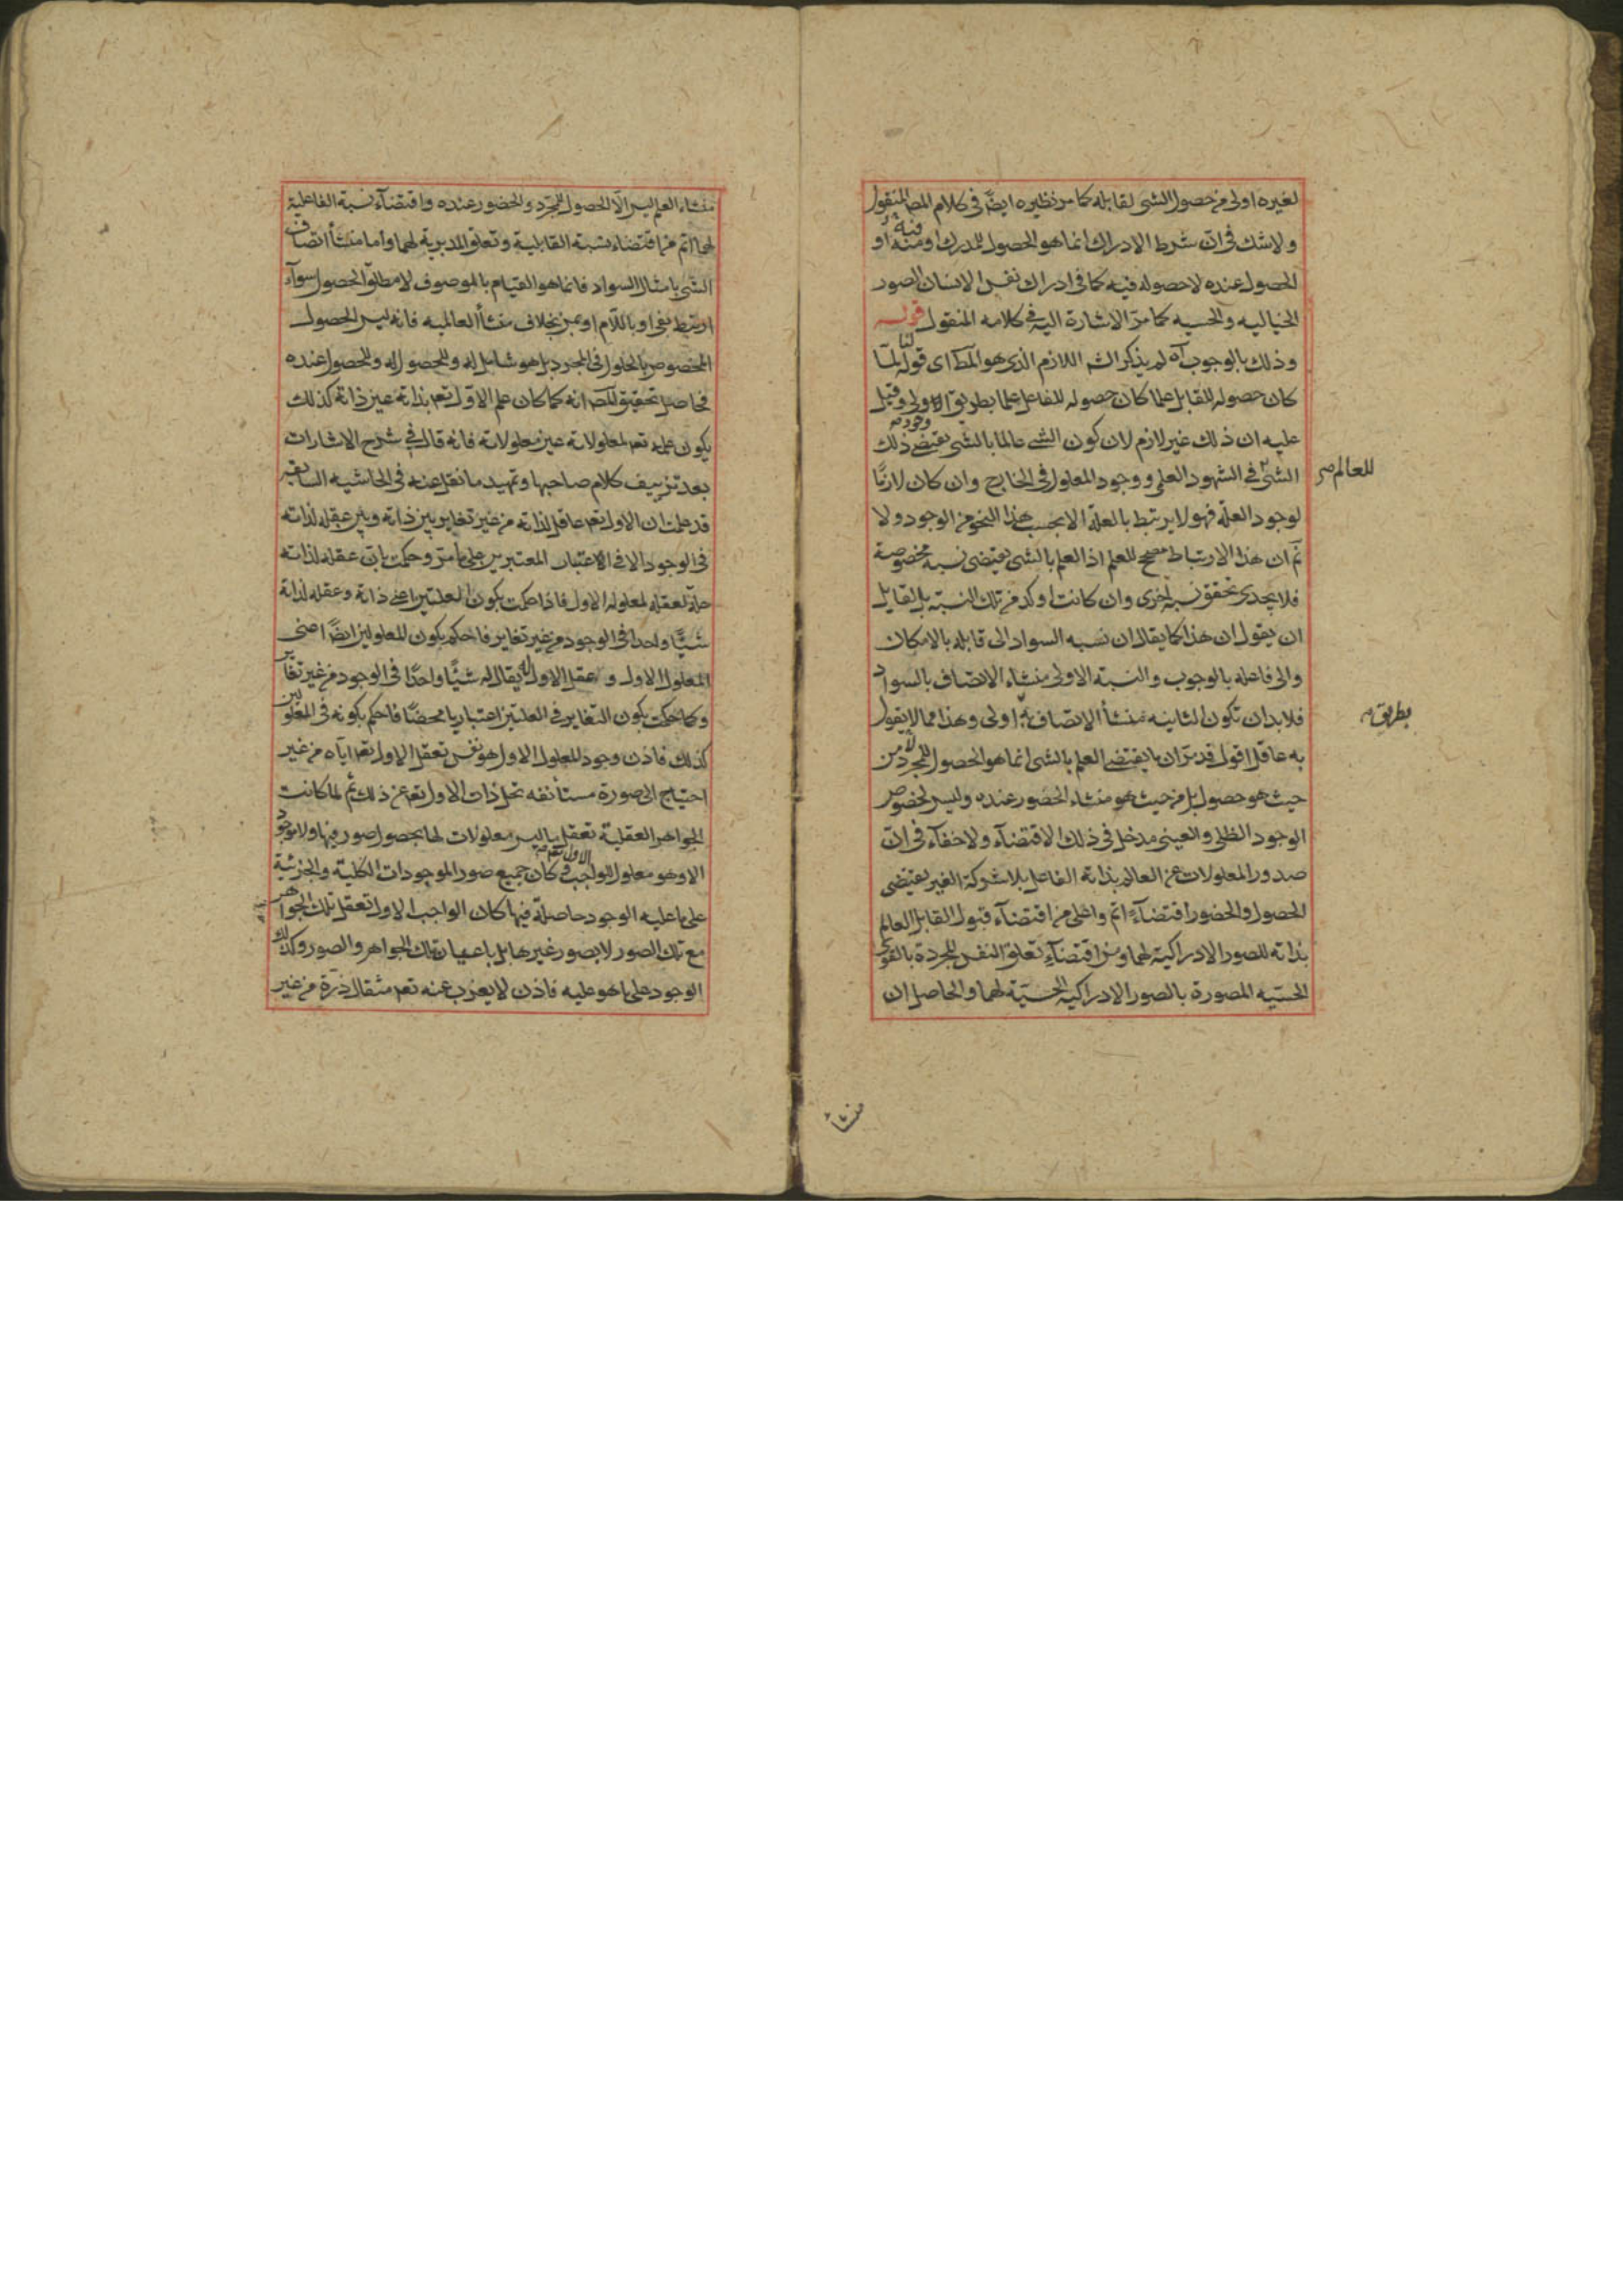 لغيره اولى من حصول الشى لقابله كما مر نظيره ايضا فى كلام المص المنقول
ولا شك فى ان شرط الادراك انما هو الحصول للمدرك او منه او
فيه
الحصول عنده لا حصوله فيه كما فى ادراك نفس الانسان الصور
الخياليه والحسيه كما مر الاشارة اليه فى كلامه المنقول قوله
وذلك بالوجوب آه لم يذكر اللازم الذى هو المط اى قوله لما
كان حصوله للقابل علما كان حصوله للفاعل علما بطريق الاولى وقيل
عليه ان ذلك غير لازم لان كون الشى عالما بالشى يقتضى ذلك
وجود
الشى فى الشهود العلمى ووجود المعلول فى الخارج وان كان لازما
للعالم صح
لوجود العلة فهو لا يرتبط بالعلة الا بحسب هذا النحو من الوجود ولا
ثم ان هذا الارتباط مصحح للعلم اذ العلم بالشى يقتضى نسبة مخصوصة
فلا يجدى تحقق نسبة اخرى وان كانت اوكد من تلك النسبة بل لقايل
ان يقول ان هذا كما يقال ان نسبه السواد الى قابله بالامكان
والى فاعله بالوجوب والنسبة الاولى منشاء الاتصاف بالسواد
فلا بد ان تكون الثانيه منشأ الاتصاف به اولى وهذا مما لا يقول
بطريق
به عاقل اقول قد مر ان ما يقتضى العلم بالشى انما هو الحصول للمجرد لا من
حيث هو حصول بل من حيث هو منشاء الحضور عنده وليس لخصوص
الوجود الظلى والعينى مدخل فى ذلك الاقتضآء ولا خفآء فى ان
صدور المعلولات عن العالم بذاته الفاعل بلا شركة الغير يقتضى
الحصول والحضور اقتضآء اتم واعلى من اقتضآء قبول القابل العالم
بذاته للصور الادراكية لهما ومن اقتضآء تعلق النفس المجردة بالقوى
الحسيه المصورة بالصور الادراكية الحسية لهما والحاصل ان
منشأ
منشاء العلم ليس الا الحصول للمجرد والحضور عنده واقتضآء نسبة الفاعلية
لهما اتم من اقتضاء نسبة القابلية وتعلق المدبرية لهما واما منشأ اتصاف
الشى بامثال السواد فانما هو القيام بالموصوف لا مطلق الحصول سوآء
ارتبط بفى او باللام او بمن بخلاف منشأ العالميه فانه ليس الحصول
المخصوص بالحلول فى المجرد بل هو شامل له وللحصول له وللحصول عنده
فحاصل تحقيق المص انه كما كان علم الاول تعم بذاته عين ذاته كذلك
يكون علمه تعم لمعلولاته عين معلولاته فانه قال فى شرح الاشارات
بعد تزييف كلام صاحبها وتمهيد ما نقل عنه فى الحاشيه السابقه
قد علمت ان الاول تعم عاقل لذاته من غير تغاير بين ذاته وبين عقله لذاته
فى الوجود الا فى الاعتبار المعتبرين على ما مر وحكمت بان عقله لذاته
علة لعقله لمعلوله الاول فاذا حكمت بكون العلتين اعنى ذاته وعقله لذاته
شيئا واحدا فى الوجود من غير تغاير فاحكم بكون المعلولين ايضا اعنى
المعلول الاول وعقل الاول تعالى له شيئا واحدا فى الوجود من غير تغاير
وكما حكمت بكون التغاير فى العلتين اعتباريا محضا فاحكم بكونه فى المعلولين
كذلك فاذن وجود المعلول الاول هو نفس تعقل الاول تعم اياه من غير
احتياج الى صورة مستأنفه تحل ذات الاول تعم عن ذلك ثم لما كانت
الجواهر العقلية تعقل ما ليس معلولات لها بحصول صور فيها ولا موجود
الا وهو معلول للواجب كان جميع صور الموجودات الكلية والجزئية
الاول تعم
على ما عليه الوجود حاصلة فيها كان الواجب الاول تعقل تلك الجواهر
مع تلك الصور لا بصور غيرها بل باعيان تلك الجواهر والصور وكذلك
الوجود على ما هو عليه فاذن لا يعزب عنه تعم مثقال ذرة من غير